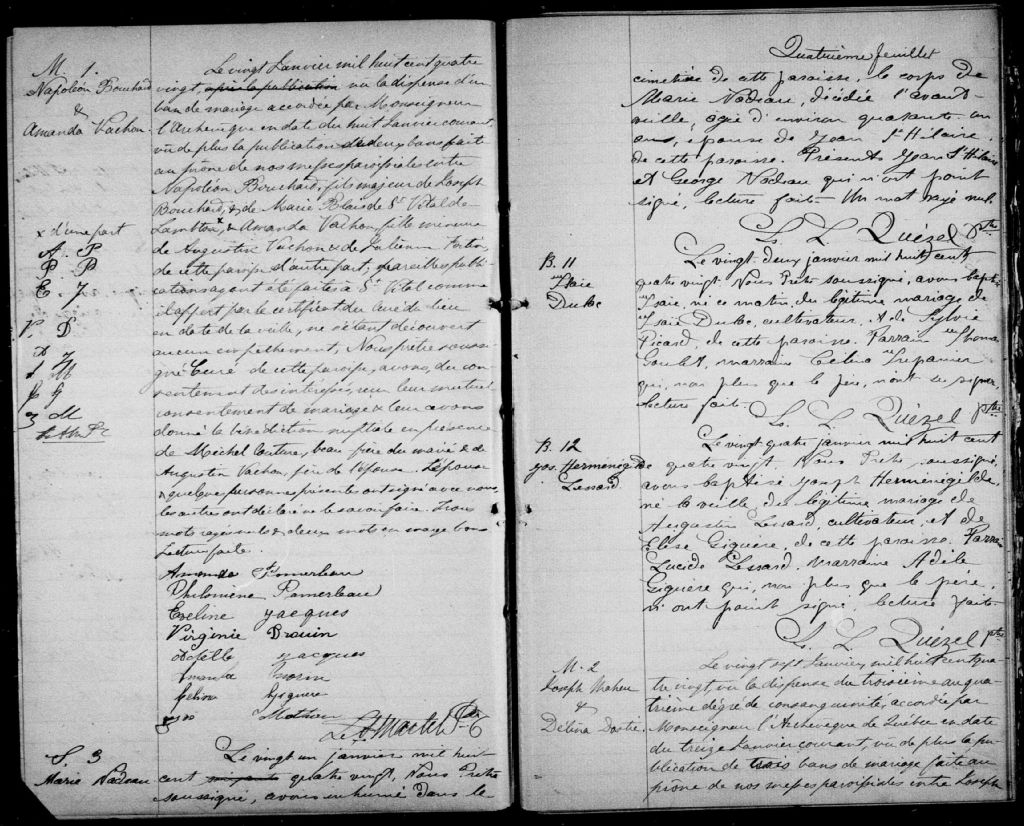 M. 1.
Napoléon Bouchard
&
Amanda Vachon.
x d'une part
A. P
P. P
E. J
V. D
A J
M
G
M
Le vingt Janvier mil huit cent quatre
vingt, après la publication vu la dispense d'un
ban de mariage accordée par Monseigneur
l'Archevêque en date du huit Janvier courant,
vu de plus la publication de deux bans fait
au prône de nos messes paroissiales entre
Napoléon Bouchard, fils majeur de Joseph
Bouchard, & de Marie Blais de St Vital de
Lambton x & Amanda Vachon, fille mineure
de Augustin Vachon & de Julienne
de cette paroisse d'autre part; pareilles publi-
cations ayant été faites à St Vital comme
il appert par le certificat du Curé du lieu
en date de la veille, ne s'étant découvert
aucun empêchement, Nous prêtre sous-
igné Curé de cette paroisse, avons, du con-
sentement des intéressés, reçu leur mutuel
consentement de mariage & leur avons
donné la bénédiction nuptiale en présence
de Michel Couture, beau père du marié & de
Augustin Vachon, père de l'épouse. L'épouse
& quelques personnes présentes ont signé avec nous,
les autres ont déclaré ne le savoir faire. Trois
mots rayés nuls & deux mots en marge bons
Lecture faite.
Amanda Pomerleau
Philomène Pomerleau
Eveline Jacques
Virginie Drouin
Jacques
Amanda Morin
Giguere
Mathieu
Martel Ptre
S. 3
Marie Nadeau
Le vingt un janvier mil huit
cent quatre vingt, Nous Prêtre
soussigné, avons inhumé dans le
Quatrième feuillet
cimetière de cette paroisse, le corps de
Marie Nadeau, décédée l'avant-
veille, agée d'environ quarante un
ans, épouse de Jean St Hilaire
de cette paroisse. Présents Jean St Hilaire
et George Nadeau qui n'ont point
signé, lecture faite. Un mot rayé nul.
L. Quézel Ptre
B. 11
Isaïe
Dulac
Le vingt-deux janvier mil huit cent
quatre vingt Nous Prêtre soussigné, avons bapti-
Isaïe, né ce matin, du légitime mariage de
Isaïe Dulac, cultivateur, & de Sylvie
Picard, de cette paroisse. Parrain Thomas
marraine Trepanier
qui, non plus que le père, n'ont su signer,
lecture faite.
L. Quézel Ptre
B. 12
Jos. Herménégilde
Lessard
Le vingt quatre janvier mil huit cent
quatre vingt Nous Prêtre soussigné,
avons baptisé Joseph Herménégilde,
né la veille du légitime mariage de
Augustin Lessard, cultivateur, et de
Elise Giguère, de cette paroisse. Parrain
Lessard, marraine Adèle
Giguère qui, non plus que le père,
n'ont point signé, lecture faite.
L. Quézel Ptre
M. 2
Joseph Maheu
&
Délina Dostie
Le vingt sept Janvier mil huit cent qua-
tre vingt, vu la dispense du troisième au qua-
trième dégré de consanguinité, accordée par
Monseigneur l'Archevêque de Québec en date
du treize Janvier courant, vu de plus la pu-
blication de trois bans de mariage faite au
prone de nos messes paroissiales entre Joseph